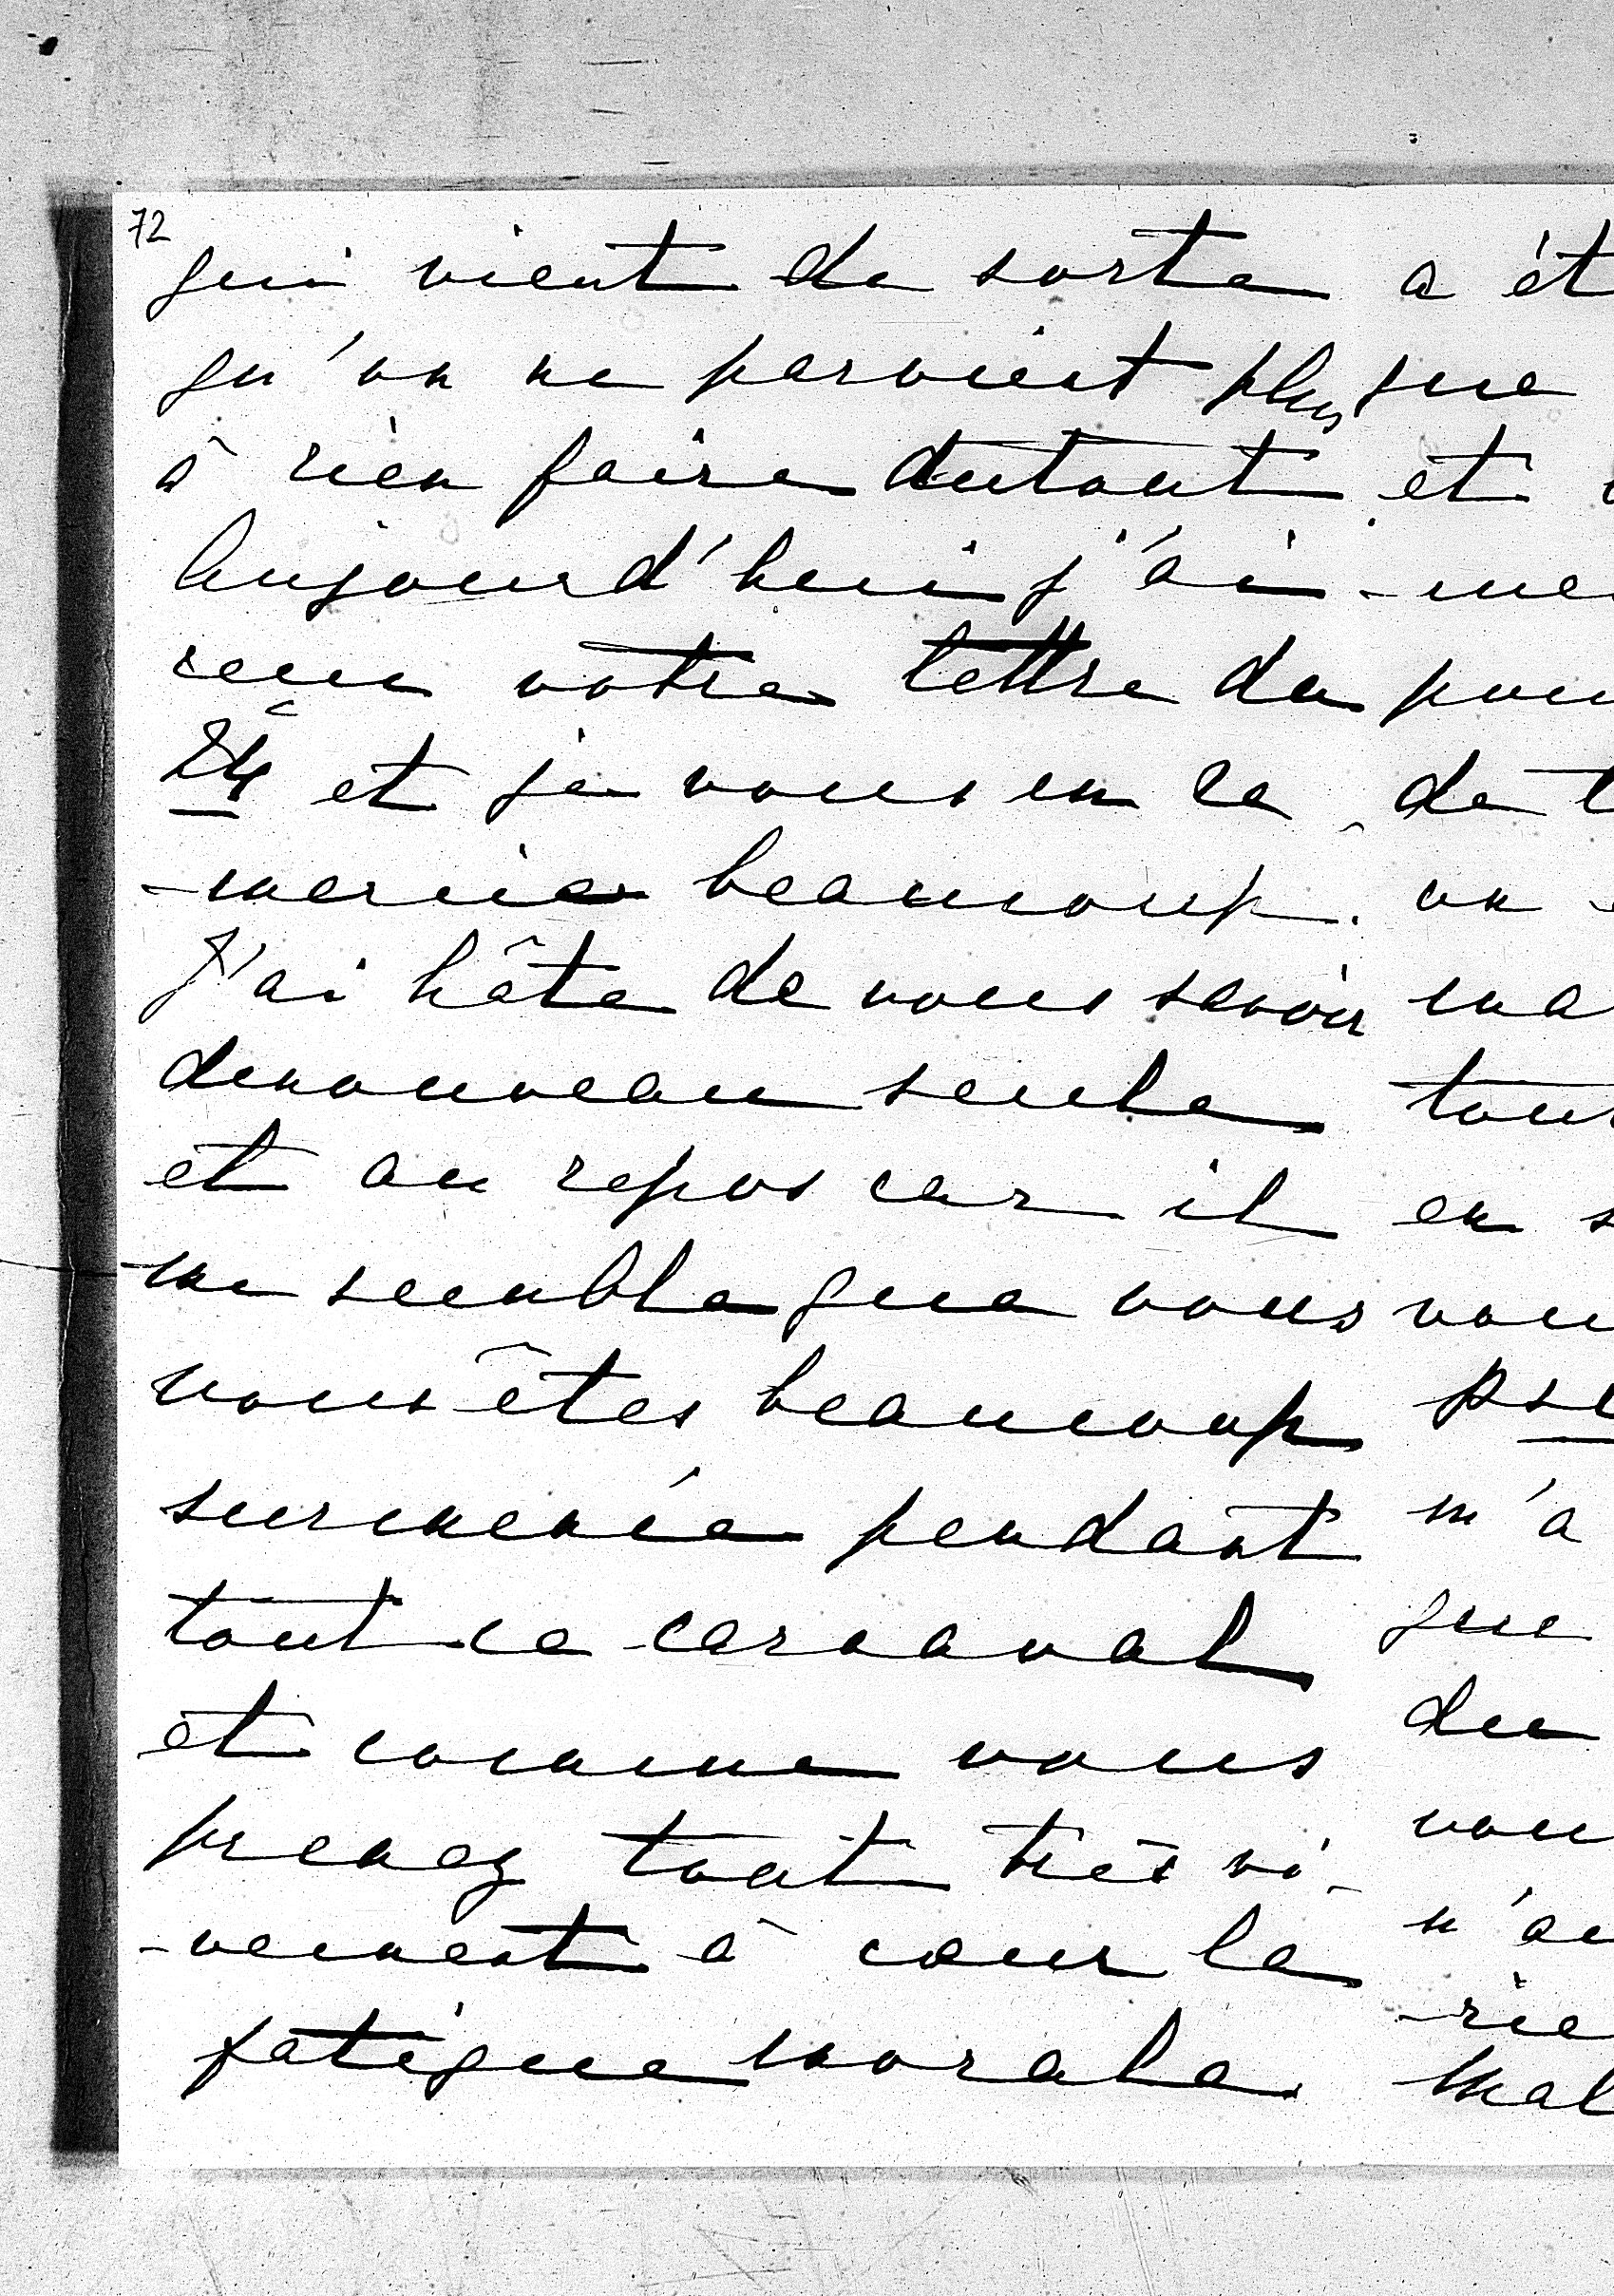 72
qui vient de sorte
qu'on ne parvient plus
à rien faire dutout
Aujourd'hui j'ai
reçu votre lettre du
24 et je vous en re
-mercie beaucoup.
J'ai hâte de vous savoir
denouveau seule
et au repos car il
me semble que vous
vous êtes beaucoup
surmenée pendant
tout ce carnaval
et comme vous
prenez tout très vi-
-vement à cœur la
fatigue morale
a ét
que
et
-me
pou
de t
on
ma
tou
en s
vou
m'a
que
du
vou
n'au
-rie
mal